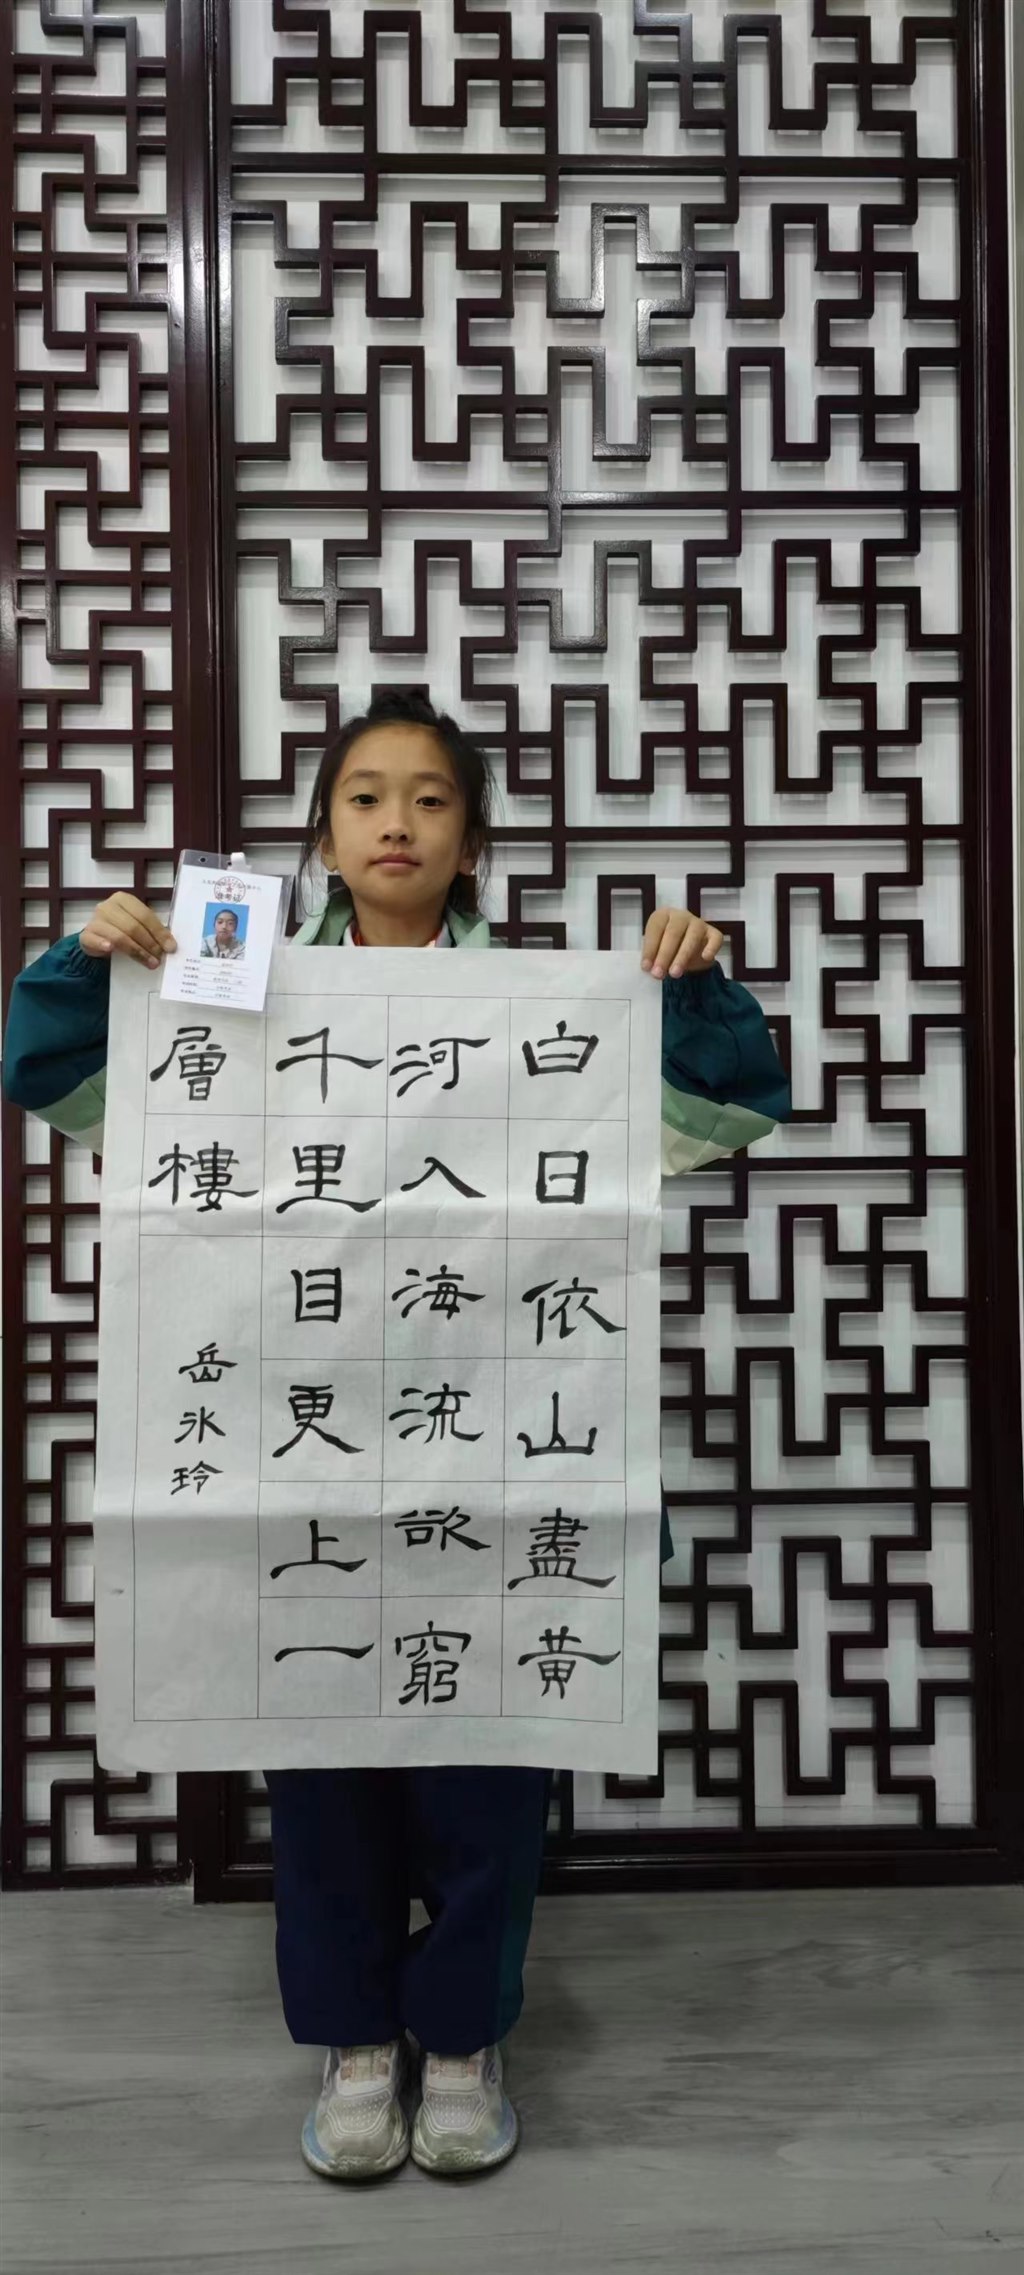 白日依山盡黄
河入海流欲窮
千里目更上一
層樓
岳氷玲
准考证